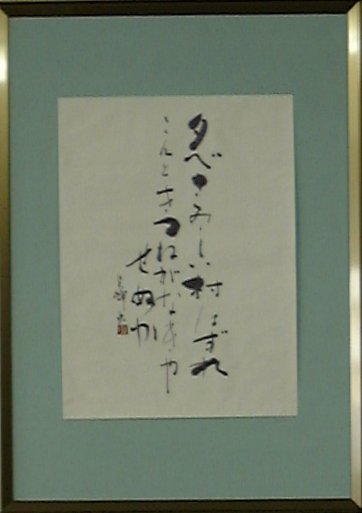 夕べさみしい村はずれ
こんときつねがなきや
せぬか